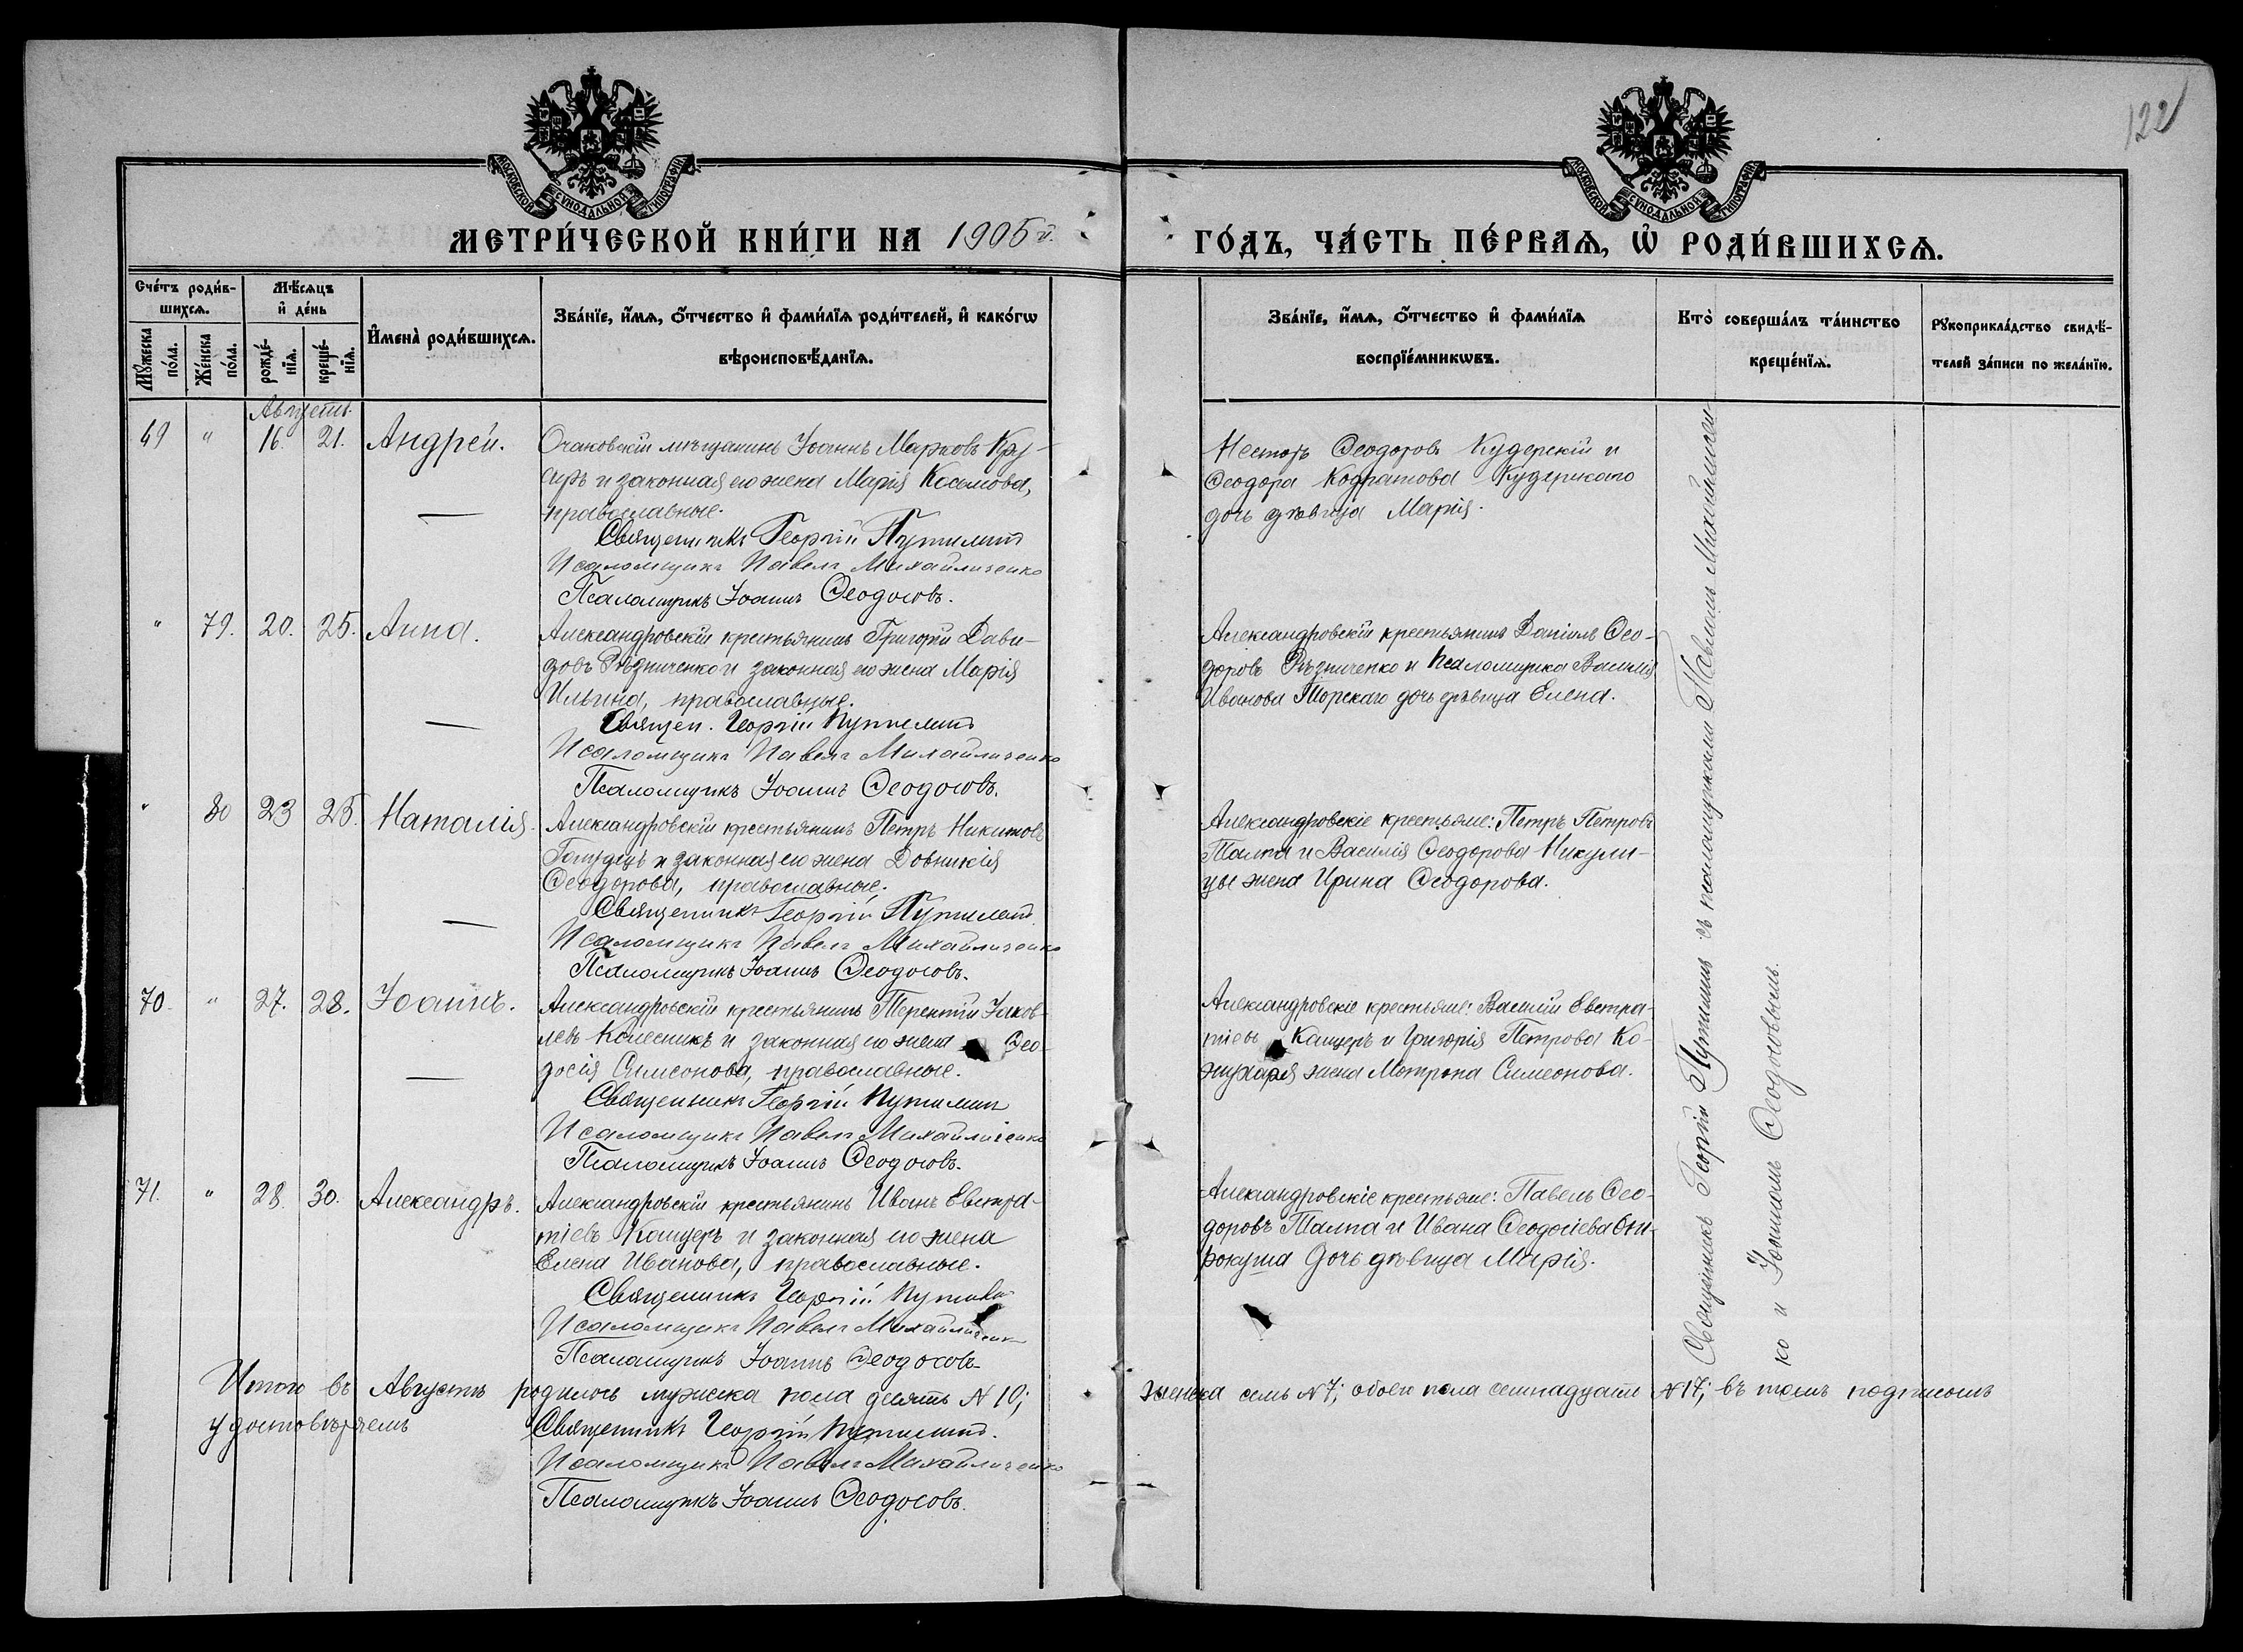 122
МОСКОВСКОЙ СѴНОДАЛЬНОЙ ТИПОГРАФІИ
МОСКОВСКОЙ СѴНОДАЛЬНОЙ ТИПОГРАФІИ
МЕТРИ́ЧЕСКОЙ КНИ́ГИ НА 1905 й.
ГО́ДЪ, ЧА́СТЬ ПЕ́РВАѦ, Ѽ РОДИ́ВШИХСѦ.
Сче́тъ роди́в-
шихсѧ.
Мꙋжеска по́ла.
Же́нска по́ла.
Мѣ́сѧцъ
и҆ де́нь
рожде́-нїѧ.
креще́-нїѧ.
И҆мена̀ роди́вшихсѧ.
Зва́нїе, и҆́мѧ, ѻ҆́тчество и҆ фами́лїѧ роди́телей, и҆ како́гѡ
вѣроисповѣ́данїѧ.
Зва́нїе, и҆́мѧ, ѻ҆́тчество и҆ фами́лїѧ
воспрїе́мникѡвъ.
Кто̀ соверша́лъ та́инство
креще́нїѧ.
Рꙋкоприкла́дство свидѣ́-
телей за́писи по жела́нїю.
Августъ.
69 " 16. 21. Андрей.
Очаковскій мѣщанинъ Іоаннъ Марковъ
и законная его жена Марія Косьмова,
православные.
Священникъ Георгій Путилинъ
Псаломщикъ Павелъ Михайличенко
Псаломщикъ Іоаннъ Ѳеодосовъ.
Несторъ Ѳеодоровъ Кудерскій и
Ѳеодора Кодратова Кудерскаго
дочь дѣвица Марія.
" 79. 20. 25. Анна.
Александровскій крестьянинъ Григорій Дави-
довъ Рѣзниченко и законная его жена Марія
Ильина, православные.
Священ. Георгій Путилинъ
Псаломщикъ Павелъ Михайличенко
Псаломщикъ Іоаннъ Ѳеодосовъ.
Александровскій крестьянинъ Даніилъ Ѳео-
доровъ Рѣзниченко и псаломщика Василія
Иванова Торскаго дочь дѣвица Елена.
" 80 23 25. Наталія.
Александровскій крестьянинъ Петръ Никитовъ
и законная его жена Довникія
Ѳеодорова, православные.
Священникъ Георгій Путилинъ
Псаломщикъ Павелъ Михайличенко
Псаломщикъ Іоаннъ Ѳеодосовъ.
Александровскіе крестьяне: Петръ Петровъ
Талпа и Василія Ѳеодорова Никули-
цы жена Ирина Ѳеодорова.
70. " 27. 28. Іоаннъ.
Александровскій крестьянинъ Терентій Іаков-
левъ Колесникъ и законная его жена Ѳео-
досія Симеонова, православные.
Священникъ Георгій Путилинъ
Псаломщикъ Павелъ Михайличенко
Псаломщикъ Іоаннъ Ѳеодосовъ.
Александровскіе крестьяне: Василій Евстра-
тіевъ Канцеръ и Григорія Петрова Ко-
жухаря жена Мотрона Симеонова.
71. " 28. 30. Александръ.
Александровскій крестьянинъ Иванъ Евстра-
тіевъ Канцеръ и законная его жена
Елена Иванова, православные.
Священникъ Георгій Путилинъ
Псаломщикъ Павелъ Михайличенко
Псаломщикъ Іоаннъ Ѳеодосовъ
Александровскіе крестьяне: Павелъ Ѳео-
доровъ Талпа и Ивана Ѳеодосіева
дочь дѣвица Марія.
Священникъ Георгій Путилинъ съ псаломщиками Павломъ Михайличен-
ко и Іоанномъ Ѳеодосовымъ.
Итого въ Августѣ родилось мужеска пола десять № 10; женска семь № 7; обоего пола семнадцать № 17; въ томъ подписомъ
удостовѣряемъ
Священникъ Георгій Путилинъ.
Псаломщикъ Павелъ Михайличенко
Псаломщикъ Іоаннъ Ѳеодосовъ.